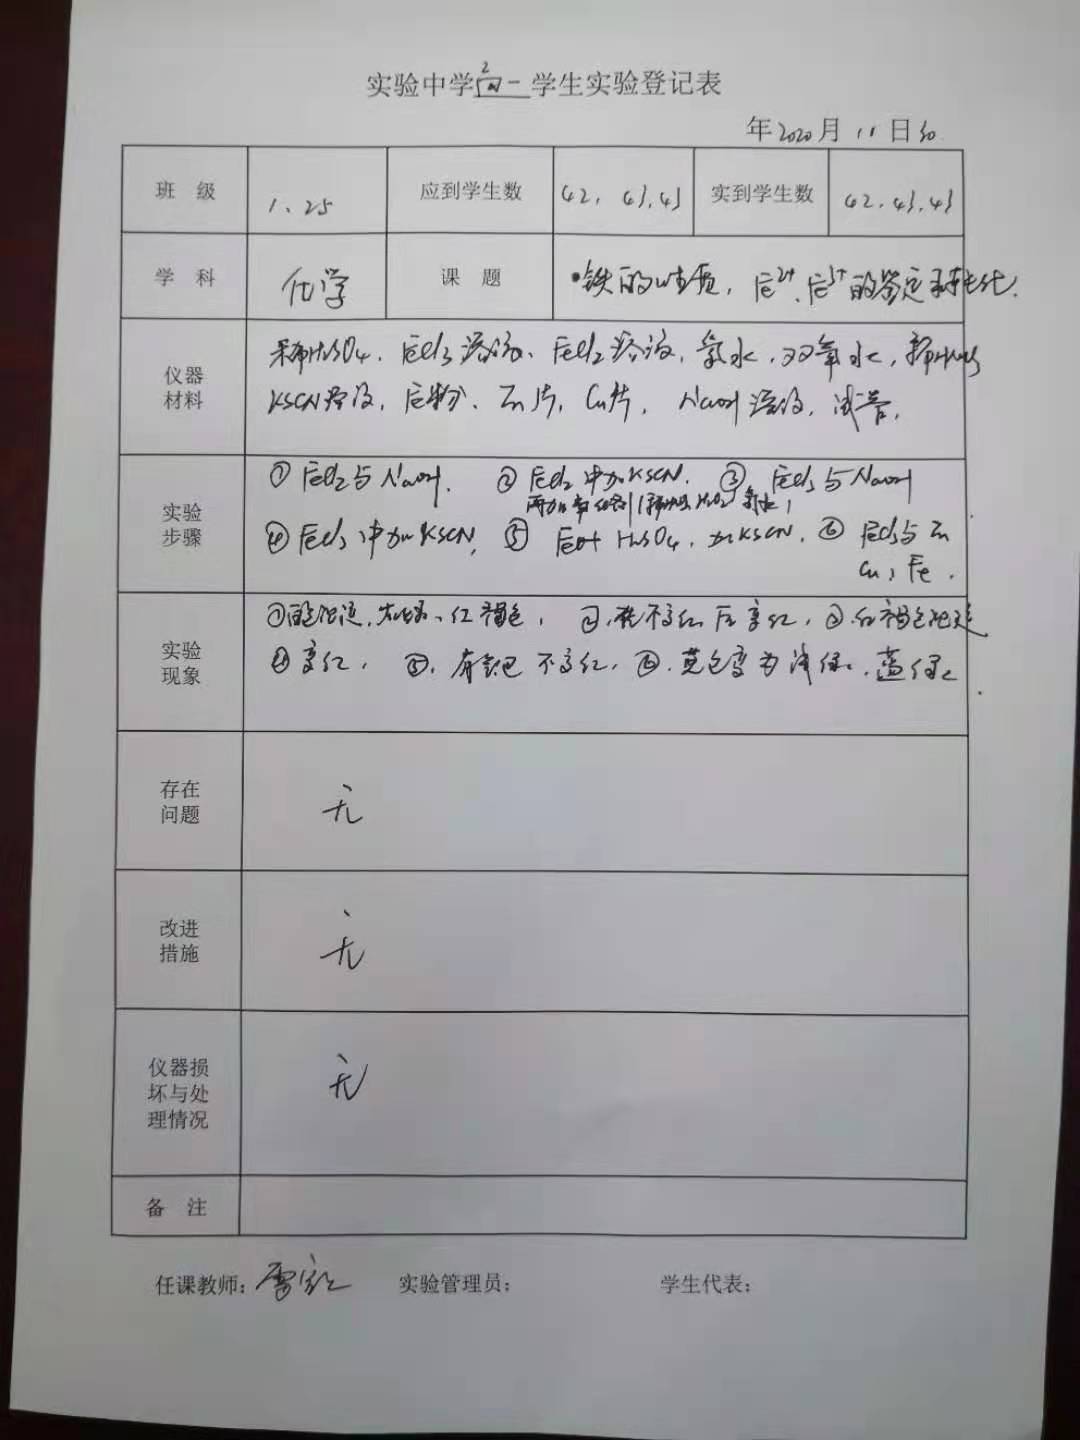 实验中学高一学生实验登记表
年2020月11日30
班 级 1、25 应到学生数 42，43，43 实到学生数 42，43，43
学 科 化学 课 题 铁的性质，Fe²⁺、Fe³⁺的鉴定和转化.
仪器材料 稀H₂SO₄、FeCl₃溶液、FeCl₂溶液，氯水，双氧水，
KSCN溶液，Fe粉、Zn片，Cu片，NaOH溶液，试管，
实验步骤 ① FeCl₂与NaOH. ② FeCl₂中加KSCN. ③ FeCl₃与NaOH
再加氧化剂 H₂O₂ 氯水
④ FeCl₃中加KSCN, ⑤ Fe+ H₂SO₄，加KSCN, ⑥ FeCl₃与Zn
Cu, Fe.
实验现象 ①白色沉淀，红褐色， ②，先不变红后变红，③.红褐色沉淀
④变红， ⑤，有气泡不变红， ⑥.黄色变为浅绿、蓝绿
存在问题 无
改进措施 无
仪器损坏与处理情况 无
备 注
任课教师： 实验管理员： 学生代表：